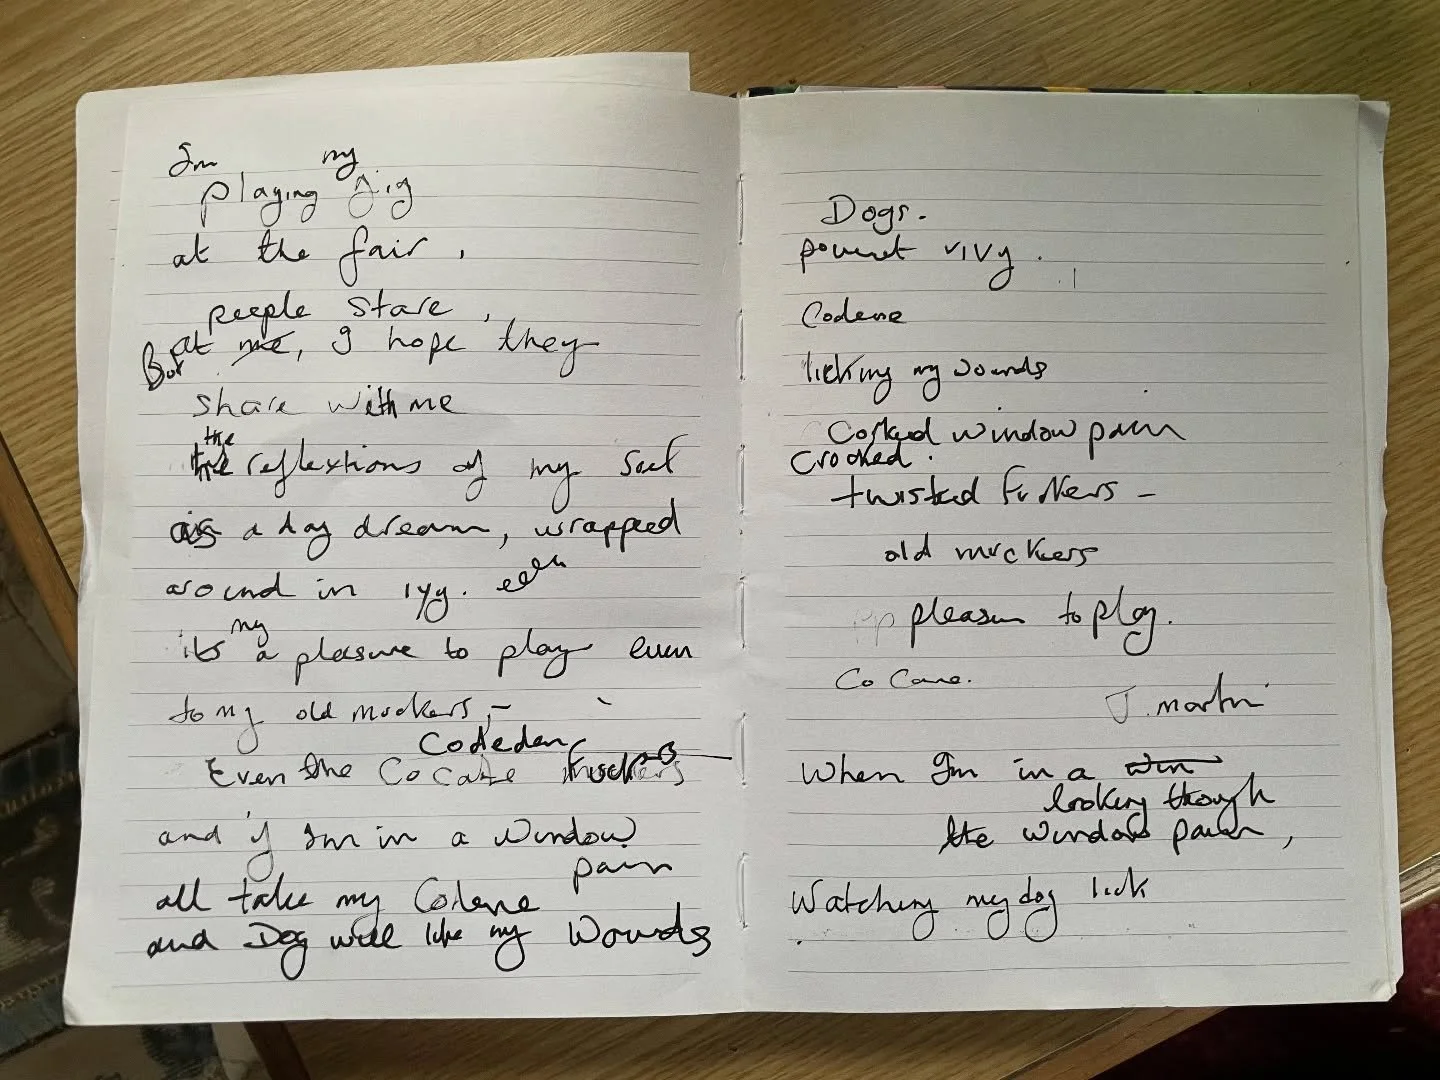 Im my
playing gig
at the fair,
people stare,
But at me, I hope they
share with me
the
the reflextions of my self
as a day dream, wrapped
around in ivy.
my
its a pleasure to play even
to my old muckers,-
Even the Cocane fuckers
and if Im in a window
pain
all take my Codene
and Dog will like my Wounds
Dogs.
vivy.
Codene
licking my wounds
window pain
Crooked.
twisted fuckers -
old muckers
pleasure to play.
Co Cane.
J. martin
When Im in a win
looking through
the window pain,
Watching my dog lick